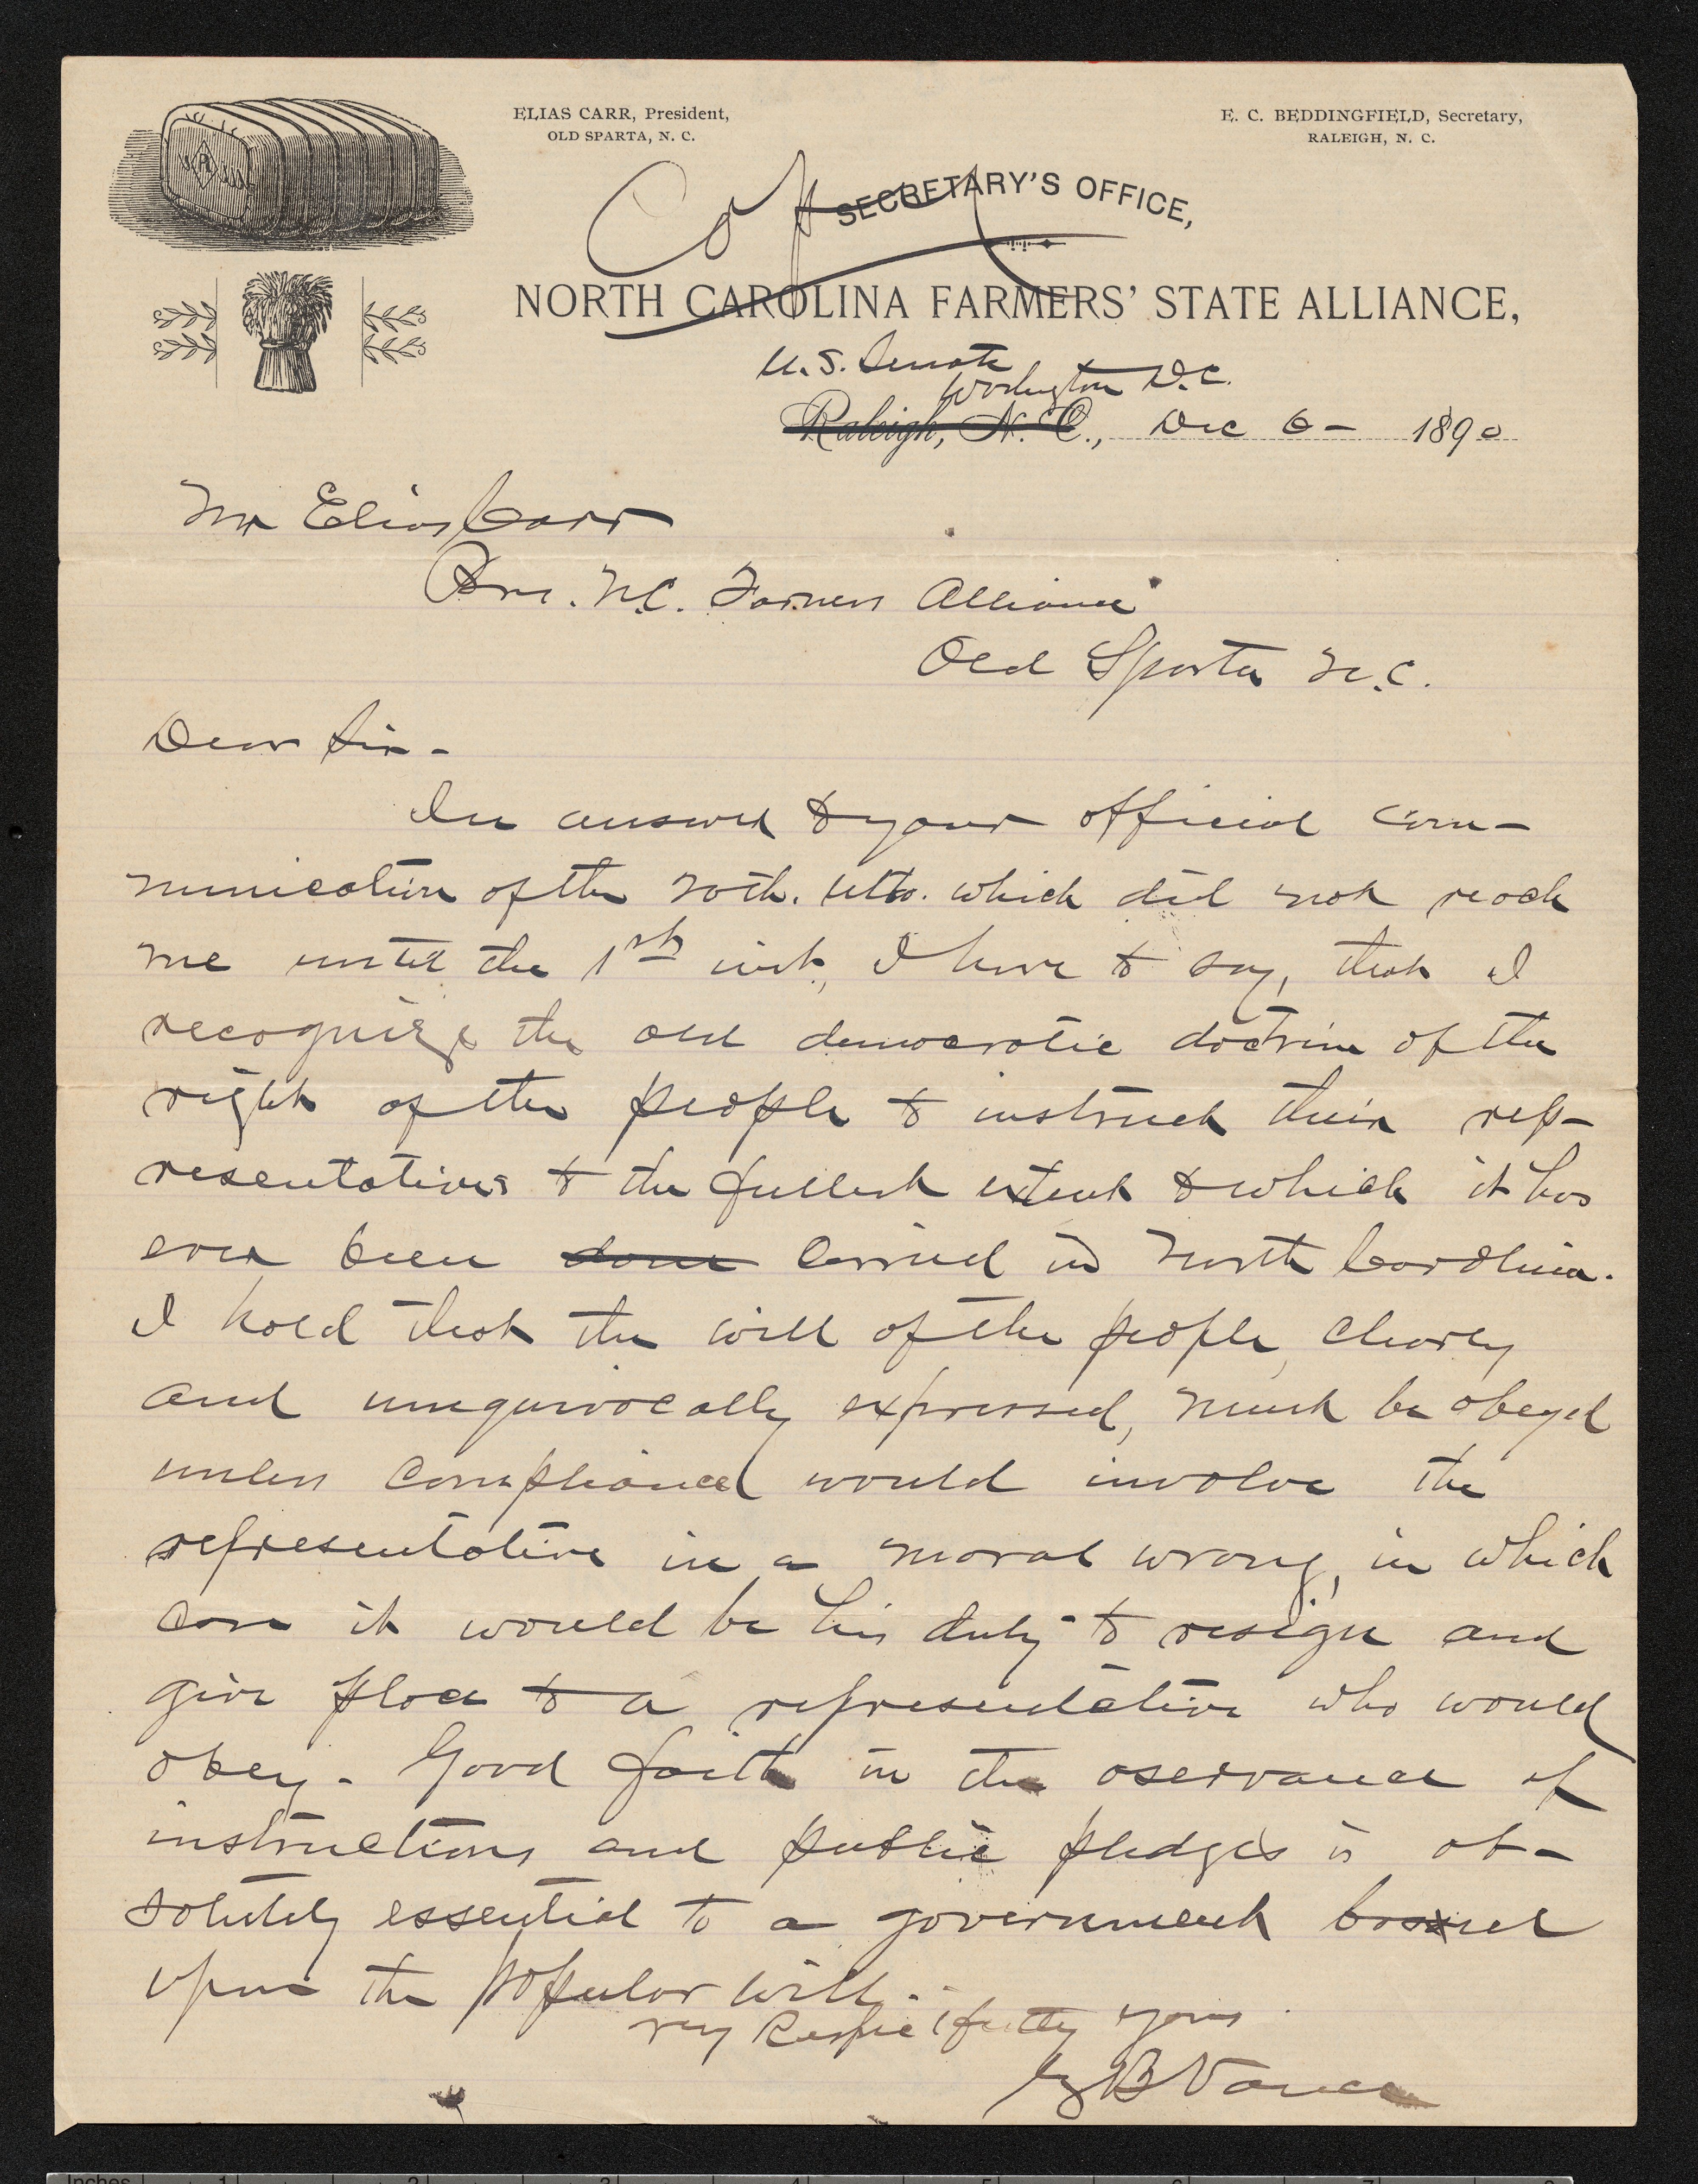 ELIAS CARR, President,
OLD SPARTA, N. C.
E. C. BEDDINGFIELD, Secretary,
RALEIGH, N. C.
Copy
SECRETARY'S OFFICE,
NORTH CAROLINA FARMERS' STATE ALLIANCE,
U. S. Senate
Washington D.C.
Raleigh, N. C., Dec 6 - 1890
Mr Elias Carr
Pres. N.C. Farmers Alliance
Old Sparta N.C.
Dear Sir -
In answer to your official com-
munication of the 20th. ulto. which did not reach
me until the 1st inst, I have to say, that I
recognize the old democratic doctrine of the
right of the people to instruct their rep-
resentatives to the fullest extent to which it has
ever been done carried in North Carolina.
I hold that the will of the people, clearly
and unequivocally expressed, must be obeyed
unless compliance would involve the
representative in a moral wrong, in which
case it would be his duty to resign and
give place to a representative who would
obey - Good faith in the oservance of
instructions and public pledges is ab-
solutely essential to a government based
upon the popular will.
very Respectfully yours
Z B Vance
Inches 1 2 3 4 5 6 7 8